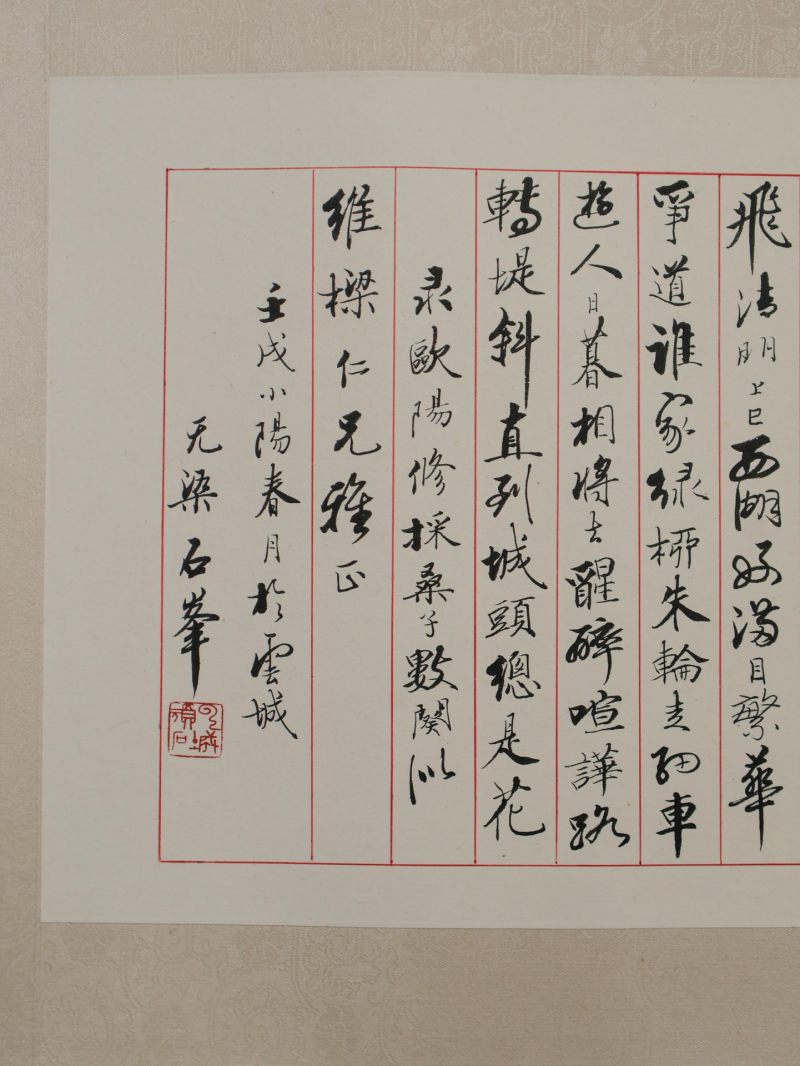 飛清明上巳西湖好滿目繁華
爭道誰家綠柳朱輪走鈿車
遊人日暮相將去醒醉喧譁路
轉堤斜直到城頭總是花
录歐陽修採桑子數闋似
維樑仁兄雅正
壬戌小陽春月於雲城
石峯